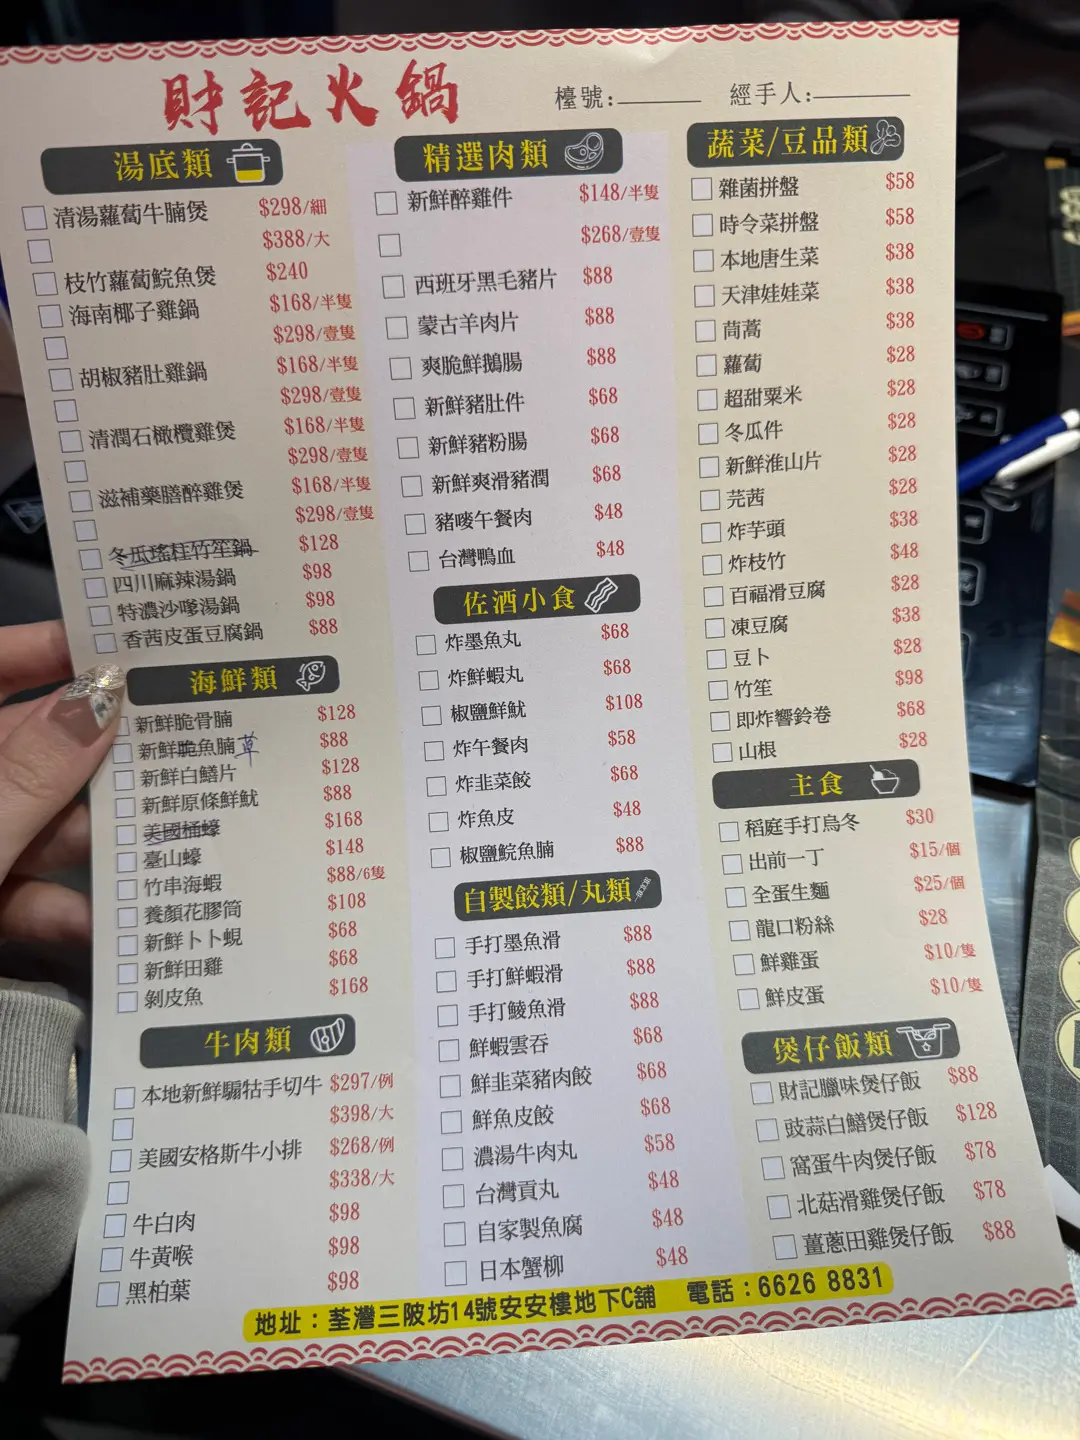 財記火鍋
檯號:
經手人:
湯底類
清湯蘿蔔牛腩煲 $298/細
$388/大
枝竹蘿蔔鯇魚煲 $240
海南椰子雞鍋 $168/半隻
$298/壹隻
胡椒豬肚雞鍋 $168/半隻
$298/壹隻
清潤石橄欖雞煲 $168/半隻
$298/壹隻
滋補藥膳醉雞煲 $168/半隻
$298/壹隻
冬瓜瑤柱竹笙鍋 $128
四川麻辣湯鍋 $98
特濃沙嗲湯鍋 $98
香茜皮蛋豆腐鍋 $88
海鮮類
新鮮脆骨腩 $128
新鮮脆魚腩 $88
新鮮白鱔片 $128
新鮮原條鮮魷 $88
美國桶蠔 $168
臺山蠔 $148
竹串海蝦 $88/6隻
養顏花膠筒 $108
新鮮卜卜蜆 $68
新鮮田雞 $68
剝皮魚 $168
牛肉類
本地新鮮騸牯手切牛 $297/例
$398/大
美國安格斯牛小排 $268/例
$338/大
牛白肉 $98
牛黃喉 $98
黑柏葉 $98
精選肉類
新鮮醉雞件 $148/半隻
$268/壹隻
西班牙黑毛豬片 $88
蒙古羊肉片 $88
爽脆鮮鵝腸 $88
新鮮豬肚件 $68
新鮮豬粉腸 $68
新鮮爽滑豬潤 $68
豬嘜午餐肉 $48
台灣鴨血 $48
佐酒小食
炸墨魚丸 $68
炸鮮蝦丸 $68
椒鹽鮮魷 $108
炸午餐肉 $58
炸韭菜餃 $68
炸魚皮 $48
椒鹽鯇魚腩 $88
自製餃類/丸類
手打墨魚滑 $88
手打鮮蝦滑 $88
手打鯪魚滑 $88
鮮蝦雲吞 $68
鮮韭菜豬肉餃 $68
鮮魚皮餃 $68
濃湯牛肉丸 $58
台灣貢丸 $48
自家製魚腐 $48
日本蟹柳 $48
蔬菜/豆品類
雜菌拼盤 $58
時令菜拼盤 $58
本地唐生菜 $38
天津娃娃菜 $38
茼蒿 $38
蘿蔔 $28
超甜粟米 $28
冬瓜件 $28
新鮮淮山片 $28
芫茜 $28
炸芋頭 $38
炸枝竹 $48
百福滑豆腐 $28
凍豆腐 $38
豆卜 $28
竹笙 $98
即炸響鈴卷 $68
山根 $28
主食
稻庭手打烏冬 $30
出前一丁 $15/個
全蛋生麵 $25/個
龍口粉絲 $28
鮮雞蛋 $10/隻
鮮皮蛋 $10/隻
煲仔飯類
財記臘味煲仔飯 $88
豉蒜白鱔煲仔飯 $128
窩蛋牛肉煲仔飯 $78
北菇滑雞煲仔飯 $78
薑蔥田雞煲仔飯 $88
地址：荃灣三陂坊14號安安樓地下C舖 電話：6626 8831